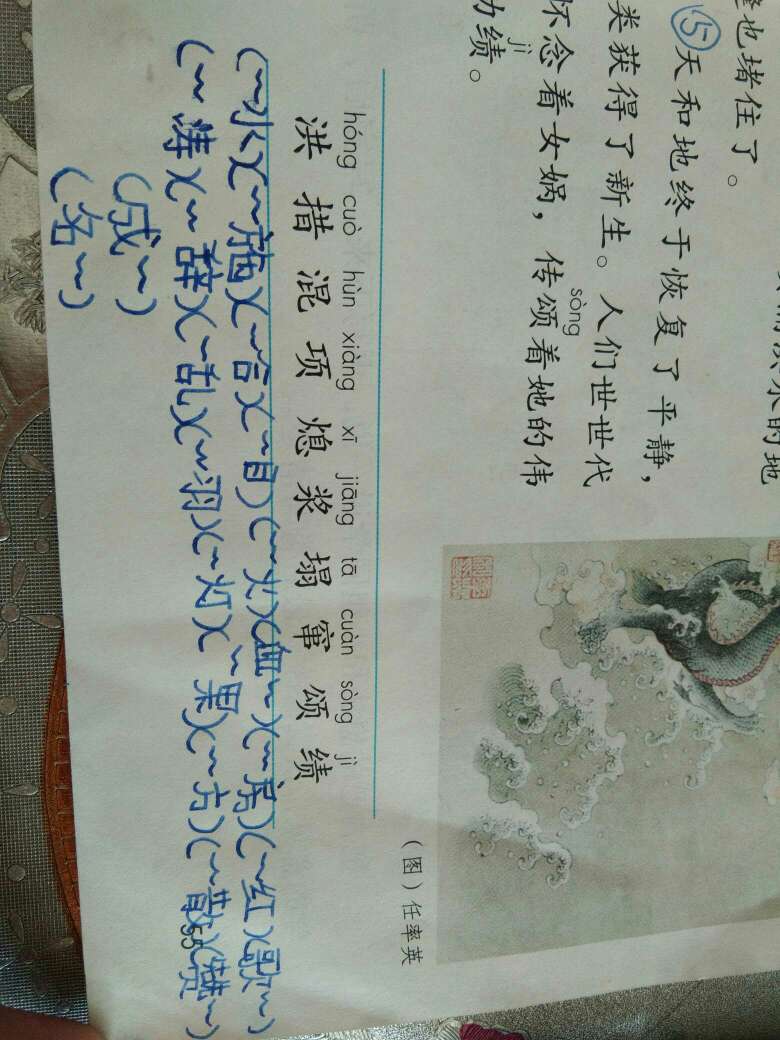 洪水的地
也堵住了。
⑤天和地终于恢复了平静，
类获得了新生。人们世世代
sòng
怀念着女娲，传颂着她的伟
jì
功绩。
（图）任率英
hóng cuò hùn xiàng xī jiāng tā cuàn sòng jì
洪 措 混 项 熄 浆 塌 窜 颂 绩
(~水)(~施)(~合)(~目)(~火)(血~)(~房)(~红)(歌~)
(~涛)(~辞)(~乱)(~羽)(~灯)(~果)(~方)(~散)(赞~)
(成~)
(名~)
55